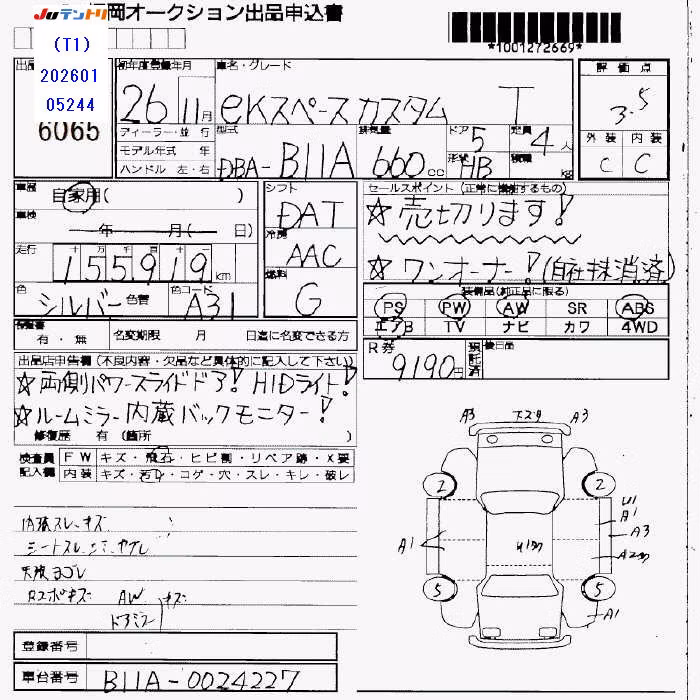 JUテントリ 福岡オークション出品申込書
(T1)
202601
05244
*1001272669*
出品
6065
初年度登録年月
26 11月
車名・グレード
eKスペースカスタム T
評価点
3.5
外装 内装
C C
ディーラー・並行
モデル年式 年
ハンドル 左・右
型式
DBA-B11A
排気量
660cc
ドア
5
形状
HB
定員
4人
積載
kg
車歴
自家用( )
車検
年 月( 日)
走行
十 万 千 百 十 一
155919km
色
シルバー
色替
色コード
A31
シフト
DAT
冷房
AAC
燃料
G
セールスポイント(正常に機能するもの)
☆売切ります!
☆ワンオーナー!(自社抹消済)
装備品(純正品に限る)
PS PW AW SR ABS
エアB TV ナビ カワ 4WD
有・無
名変期限 月 日迄に名変できる方
R券
9190円
預託済
後日品
出品店申告欄(不良内容・欠品など具体的に記入して下さい)
☆両側パワースライドドア! HIDライト!
☆ルームミラー内蔵バックモニター!
修復歴 有(箇所 )
検査員 FW キズ・飛石・ヒビ割・リペア跡・X要
記入欄 内装 キズ・汚れ・コゲ・穴・スレ・キレ・破レ
内張スレ、キズ
天張ヨゴレ
AW
ドアミラー キズ
A3 A3
2 2
U1
A1
A1
A3
5 5
A1
登録番号
車台番号
B11A-0024227